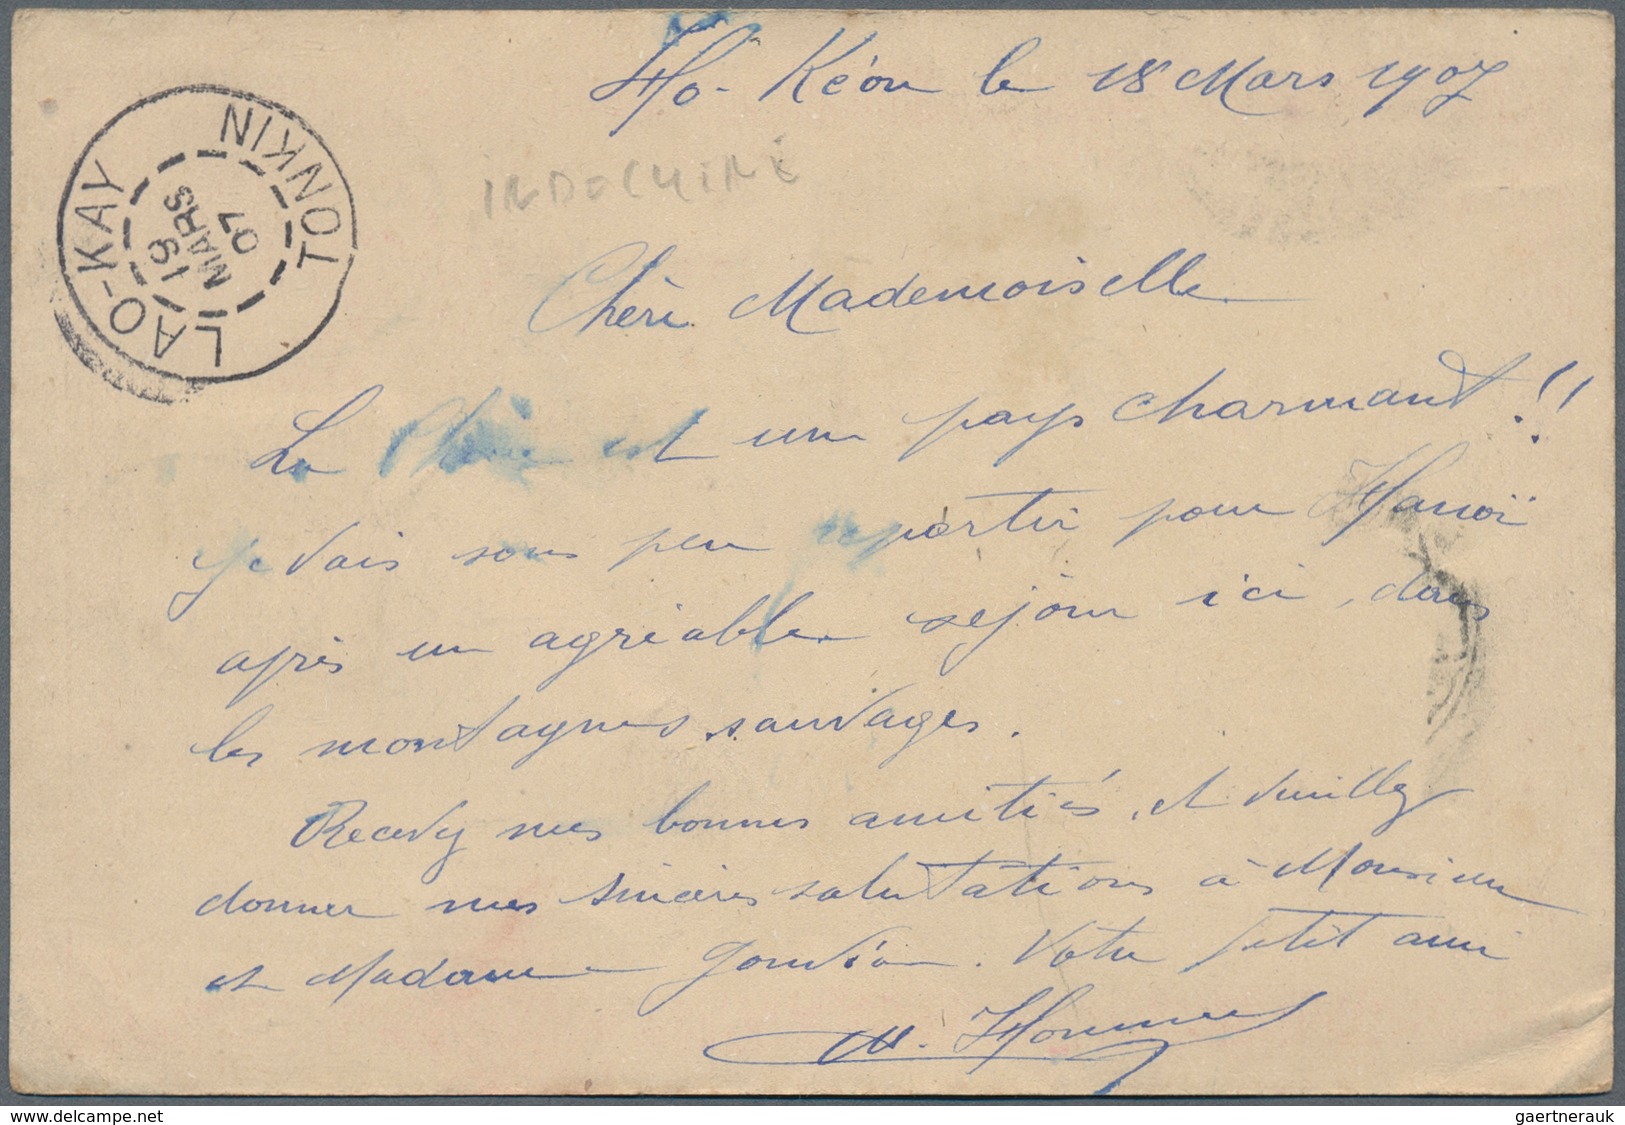 Ho-Kéou le 18 Mars 1907
INDOCHINE
LAO-KAY TONKIN
19
MARS
07
Chère Mademoiselle
La Chine est un pays charmant!!
je vais sous peu repartir pour Hanoï
après un agréable séjour ici, dans
les montagnes sauvages.
Recevez mes bonnes amitiés, et veuillez
donner mes sincères salutations à Monsieur
et Madame . Votre petit ami
www.delcampe.net
gaertnerauk